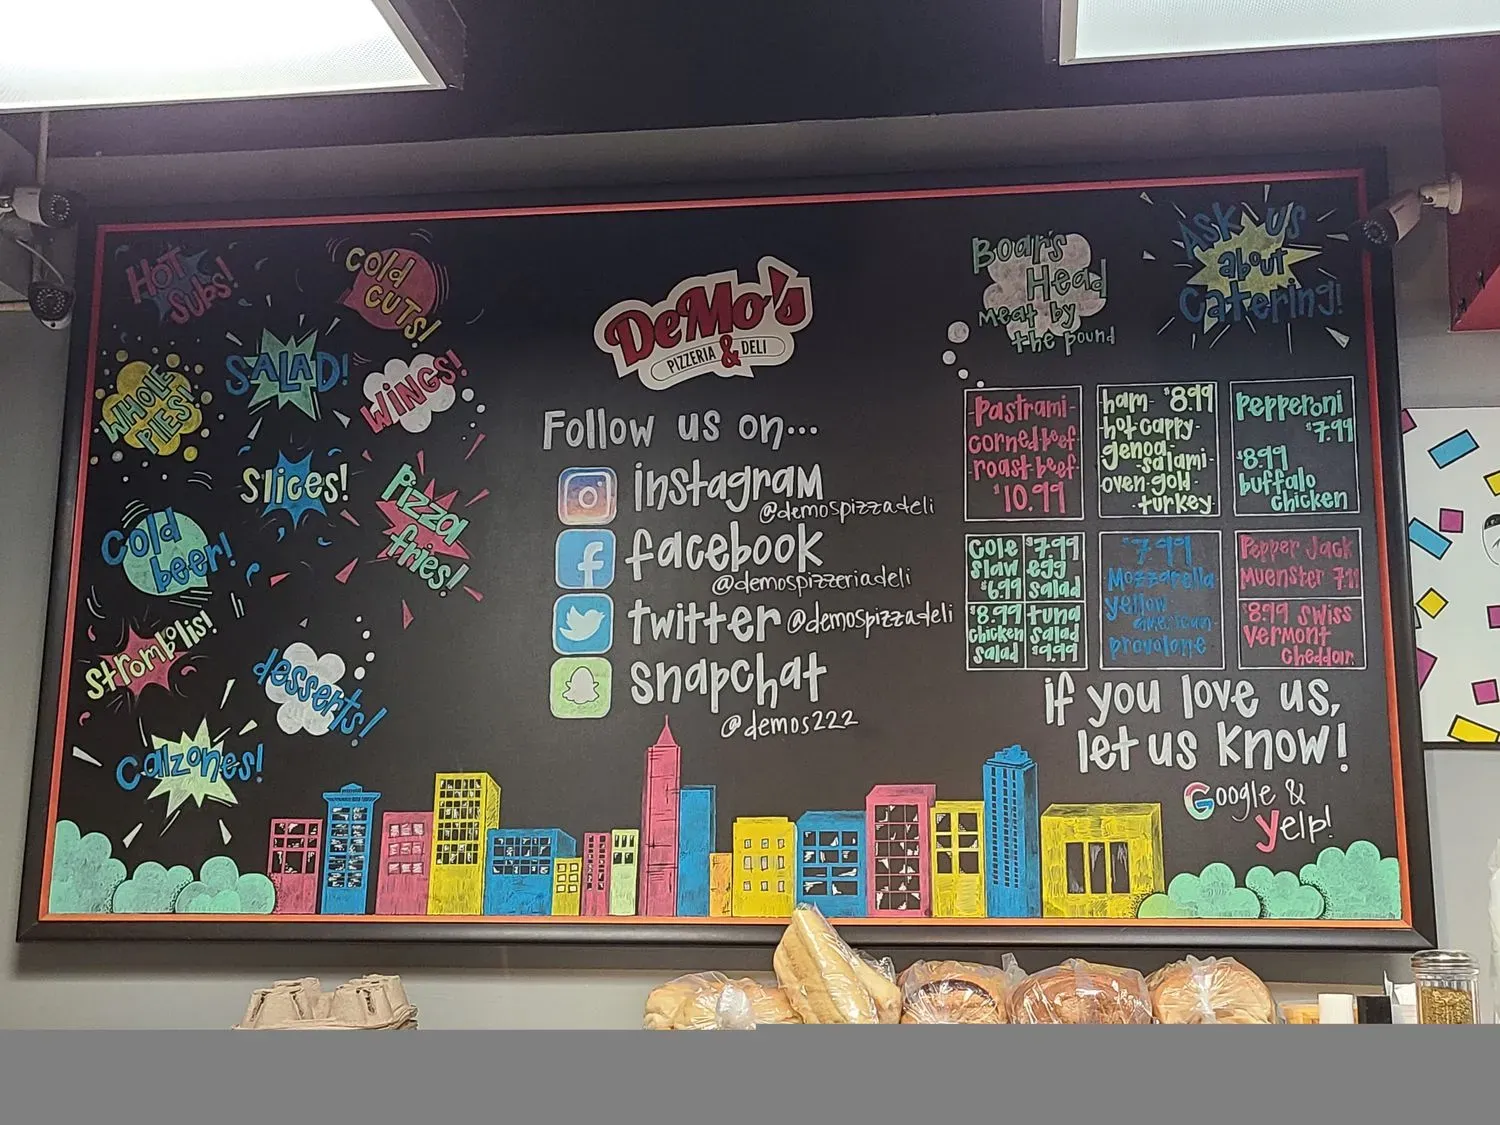 HOT
SUBS!
COLD
CUTS!
SALAD!
WHOLE
PIES!
WINGS!
SLICES!
Pizza
fries!
Cold
beer!
Strombolis!
desserts!
Calzones!
DeMo's
PIZZERIA & DELI
Follow us on...
instagram
@demospizzadeli
facebook
@demospizzeriadeli
twitter @demospizzadeli
snapchat
@demos222
Boar's
Head
meat by
the pound
ASK US
about
Catering!
-Pastrami-
corned beef
-roast beef-
$10.99
ham- $8.99
-hot cappy-
genoa
-salami-
oven gold-
-turkey
Pepperoni
$7.99
$8.99
buffalo
chicken
Cole
Slaw
$6.99
$7.99
egg
salad
$8.99
chicken
salad
tuna
salad
$9.99
$7.99
Mozzarella
yellow
american-
provolone
Pepper Jack
Muenster
$8.99 Swiss
Vermont
Cheddar
if you love us,
let us know!
Google &
yelp!